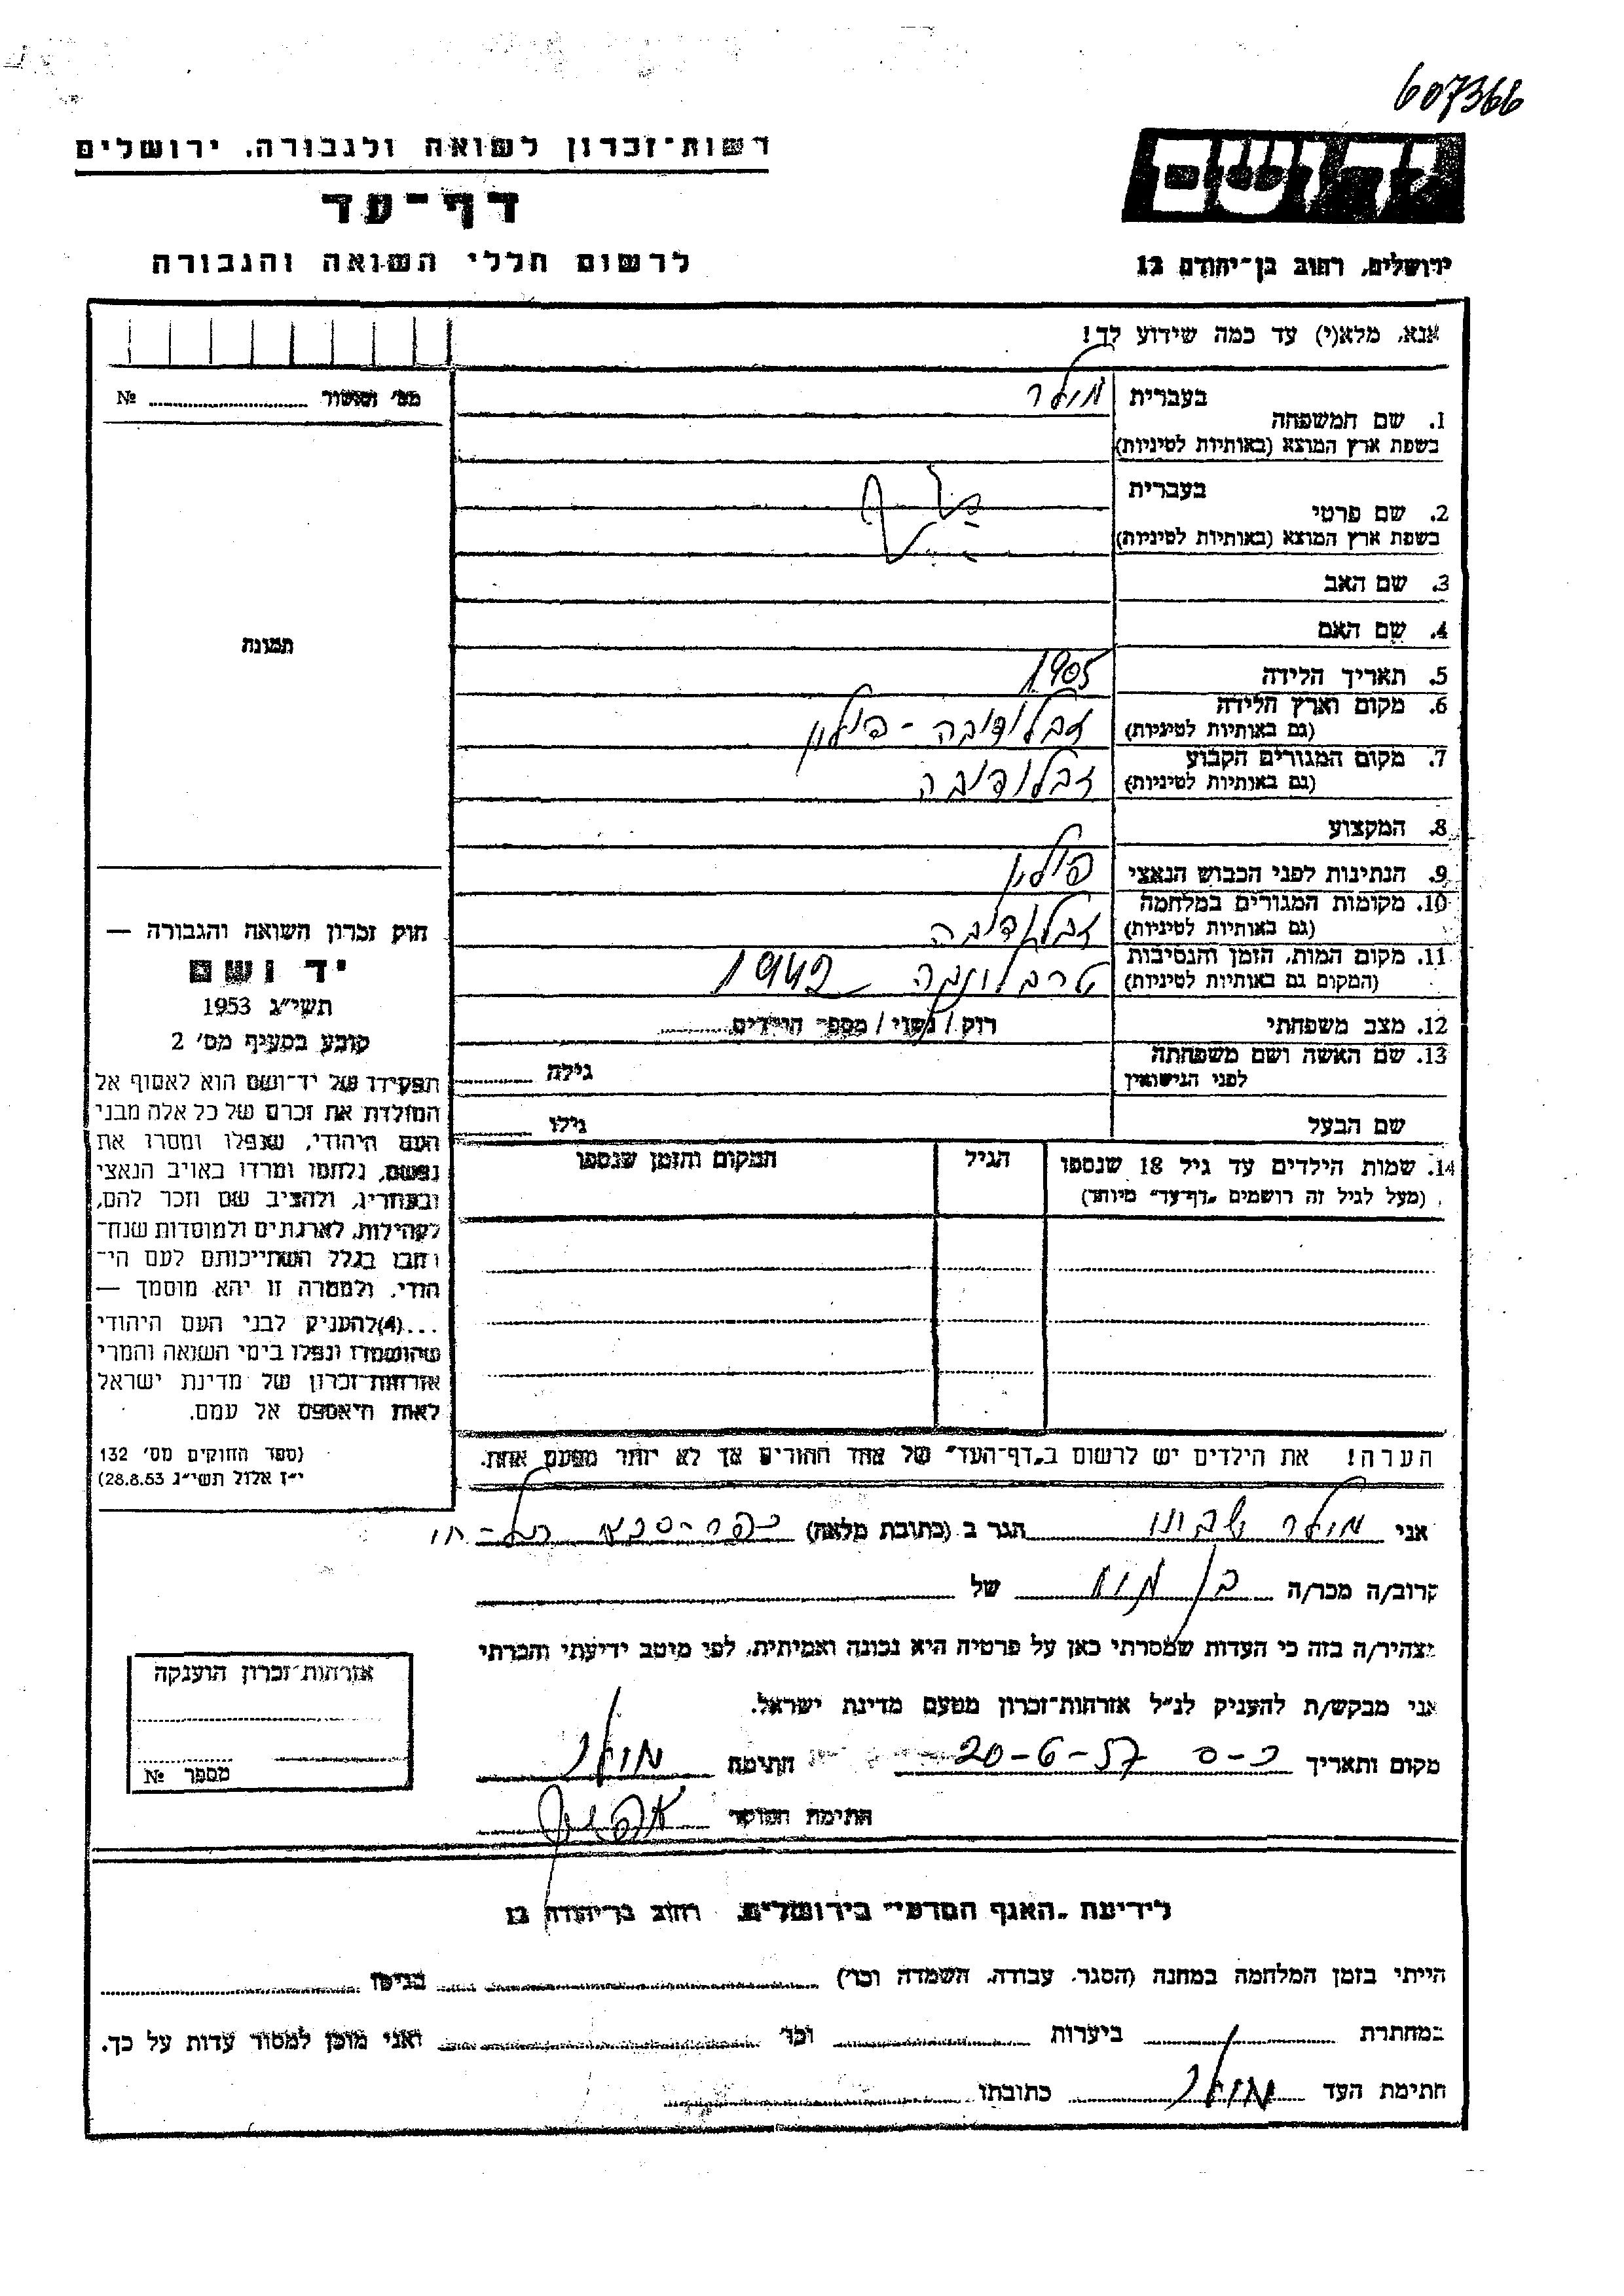 607366
רשות־זכרון לשואה ולגבורה, ירושלים
דף־עד
לרשום חללי השואה והגבורה
יד ושם
ירושלים, רחוב בן־יהודה 12
אנא, מלא(י) עד כמה שידוע לך!
מס׳ № 
1. שם המשפחה בעברית מולר
בשפת ארץ המוצא (באותיות לטיניות)
2. שם פרטי בעברית
בשפת ארץ המוצא (באותיות לטיניות)
3. שם האב
4. שם האם
5. תאריך הלידה 1905
6. מקום וארץ הלידה זבלודובה - פולין
(גם באותיות לטיניות)
7. מקום המגורים הקבוע זבלודובה
(גם באותיות לטיניות)
8. המקצוע
9. הנתינות לפני הכבוש הנאצי פולין
10. מקומות המגורים במלחמה זבלודובה
(גם באותיות לטיניות)
11. מקום המות, הזמן והנסיבות טרבלונקה 1942
(המקום גם באותיות לטיניות)
12. מצב משפחתי רוק / נשוי / מספר הילדים
13. שם האשה ושם משפחתה
לפני הנישואין גילה
שם הבעל גילו
14. שמות הילדים עד גיל 18 שנספו הגיל המקום והזמן שנספו
(מעל לגיל זה רושמים „דף־עד״ מיוחד)
הערה! את הילדים יש לרשום ב„דף־העד״ של אחד ההורים אך לא יותר מפעם אחת.
תמונה
חוק זכרון השואה והגבורה —
יד ושם
תשי״ג 1953
קובע בסעיף מס׳ 2
תפקידו של יד־ושם הוא לאסוף אל
המולדת את זכרם של כל אלה מבני
העם היהודי, שנפלו ומסרו את
נפשם, נלחמו ומרדו באויב הנאצי
ובעוזריו, ולהציב שם וזכר להם,
לקהילות, לארגונים ולמוסדות שנח־
רבו בגלל השתייכותם לעם הי־
הודי, ולמטרה זו יהא מוסמך —
...(4) להעניק לבני העם היהודי
שהושמדו ונפלו בימי השואה והמרי
אזרחות־זכרון של מדינת ישראל
לאות היאספם אל עמם.
(ספר החוקים מס׳ 132
י״ז אלול תשי״ג 28.8.53)
אני מולר הגר ב (כתובת מלאה) כפר-סבא
קרוב/ה מכר/ה בן של
מצהיר/ה בזה כי העדות שמסרתי כאן על פרטיה היא נכונה ואמיתית, לפי מיטב ידיעתי והכרתי
אני מבקש/ת להעניק לנ״ל אזרחות־זכרון מטעם מדינת ישראל.
מקום ותאריך כ-ס 20-6-57 חתימה מולר
חתימת
אזרחות־זכרון הוענקה
מספר №
לידיעת „האגף המדעי״ בירושלים, רחוב בן־יהודה 12
הייתי בזמן המלחמה במחנה (הסגר, עבודה, השמדה וכו׳) בגיטו
במחתרת ביערות וכו׳ ואני מוכן למסור עדות על כך.
חתימת העד מולר כתובתו